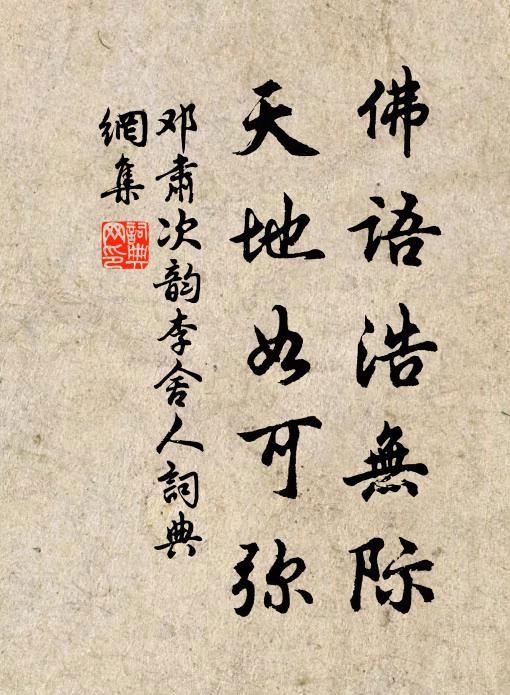 佛语浩無际
天地如可弥
邓肃次韵李舍人詞典
網集
詞典网印